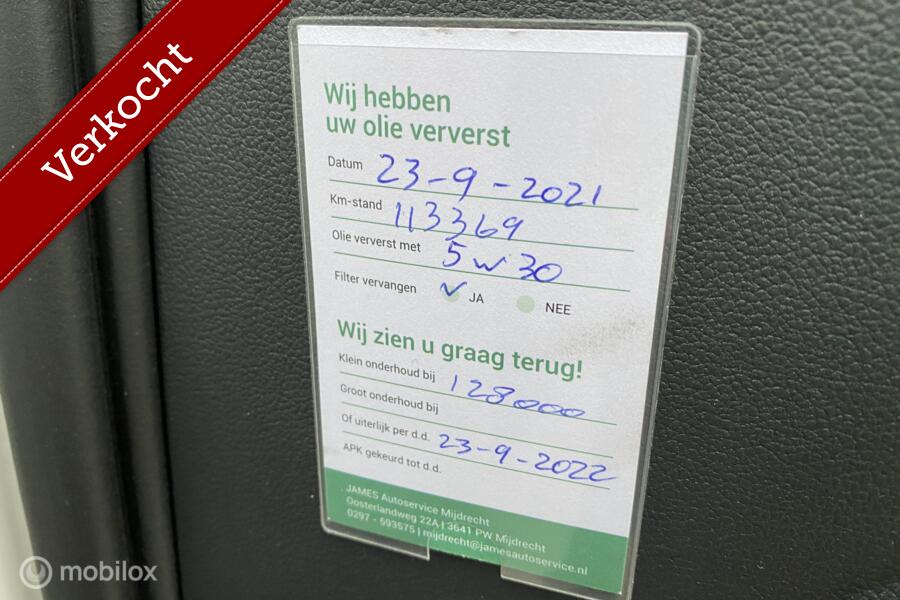 Verkocht
Wij hebben
uw olie ververst
Datum 23-9-2021
Km-stand 113369
Olie ververst met 5w30
Filter vervangen JA NEE
Wij zien u graag terug!
Klein onderhoud bij 128000
Groot onderhoud bij
Of uiterlijk per d.d. 23-9-2022
APK gekeurd tot d.d.
JAMES Autoservice Mijdrecht
Oosterlandweg 22A | 3641 PW Mijdrecht
0297 - 593575 | mijdrecht@jamesautoservice.nl
mobilox